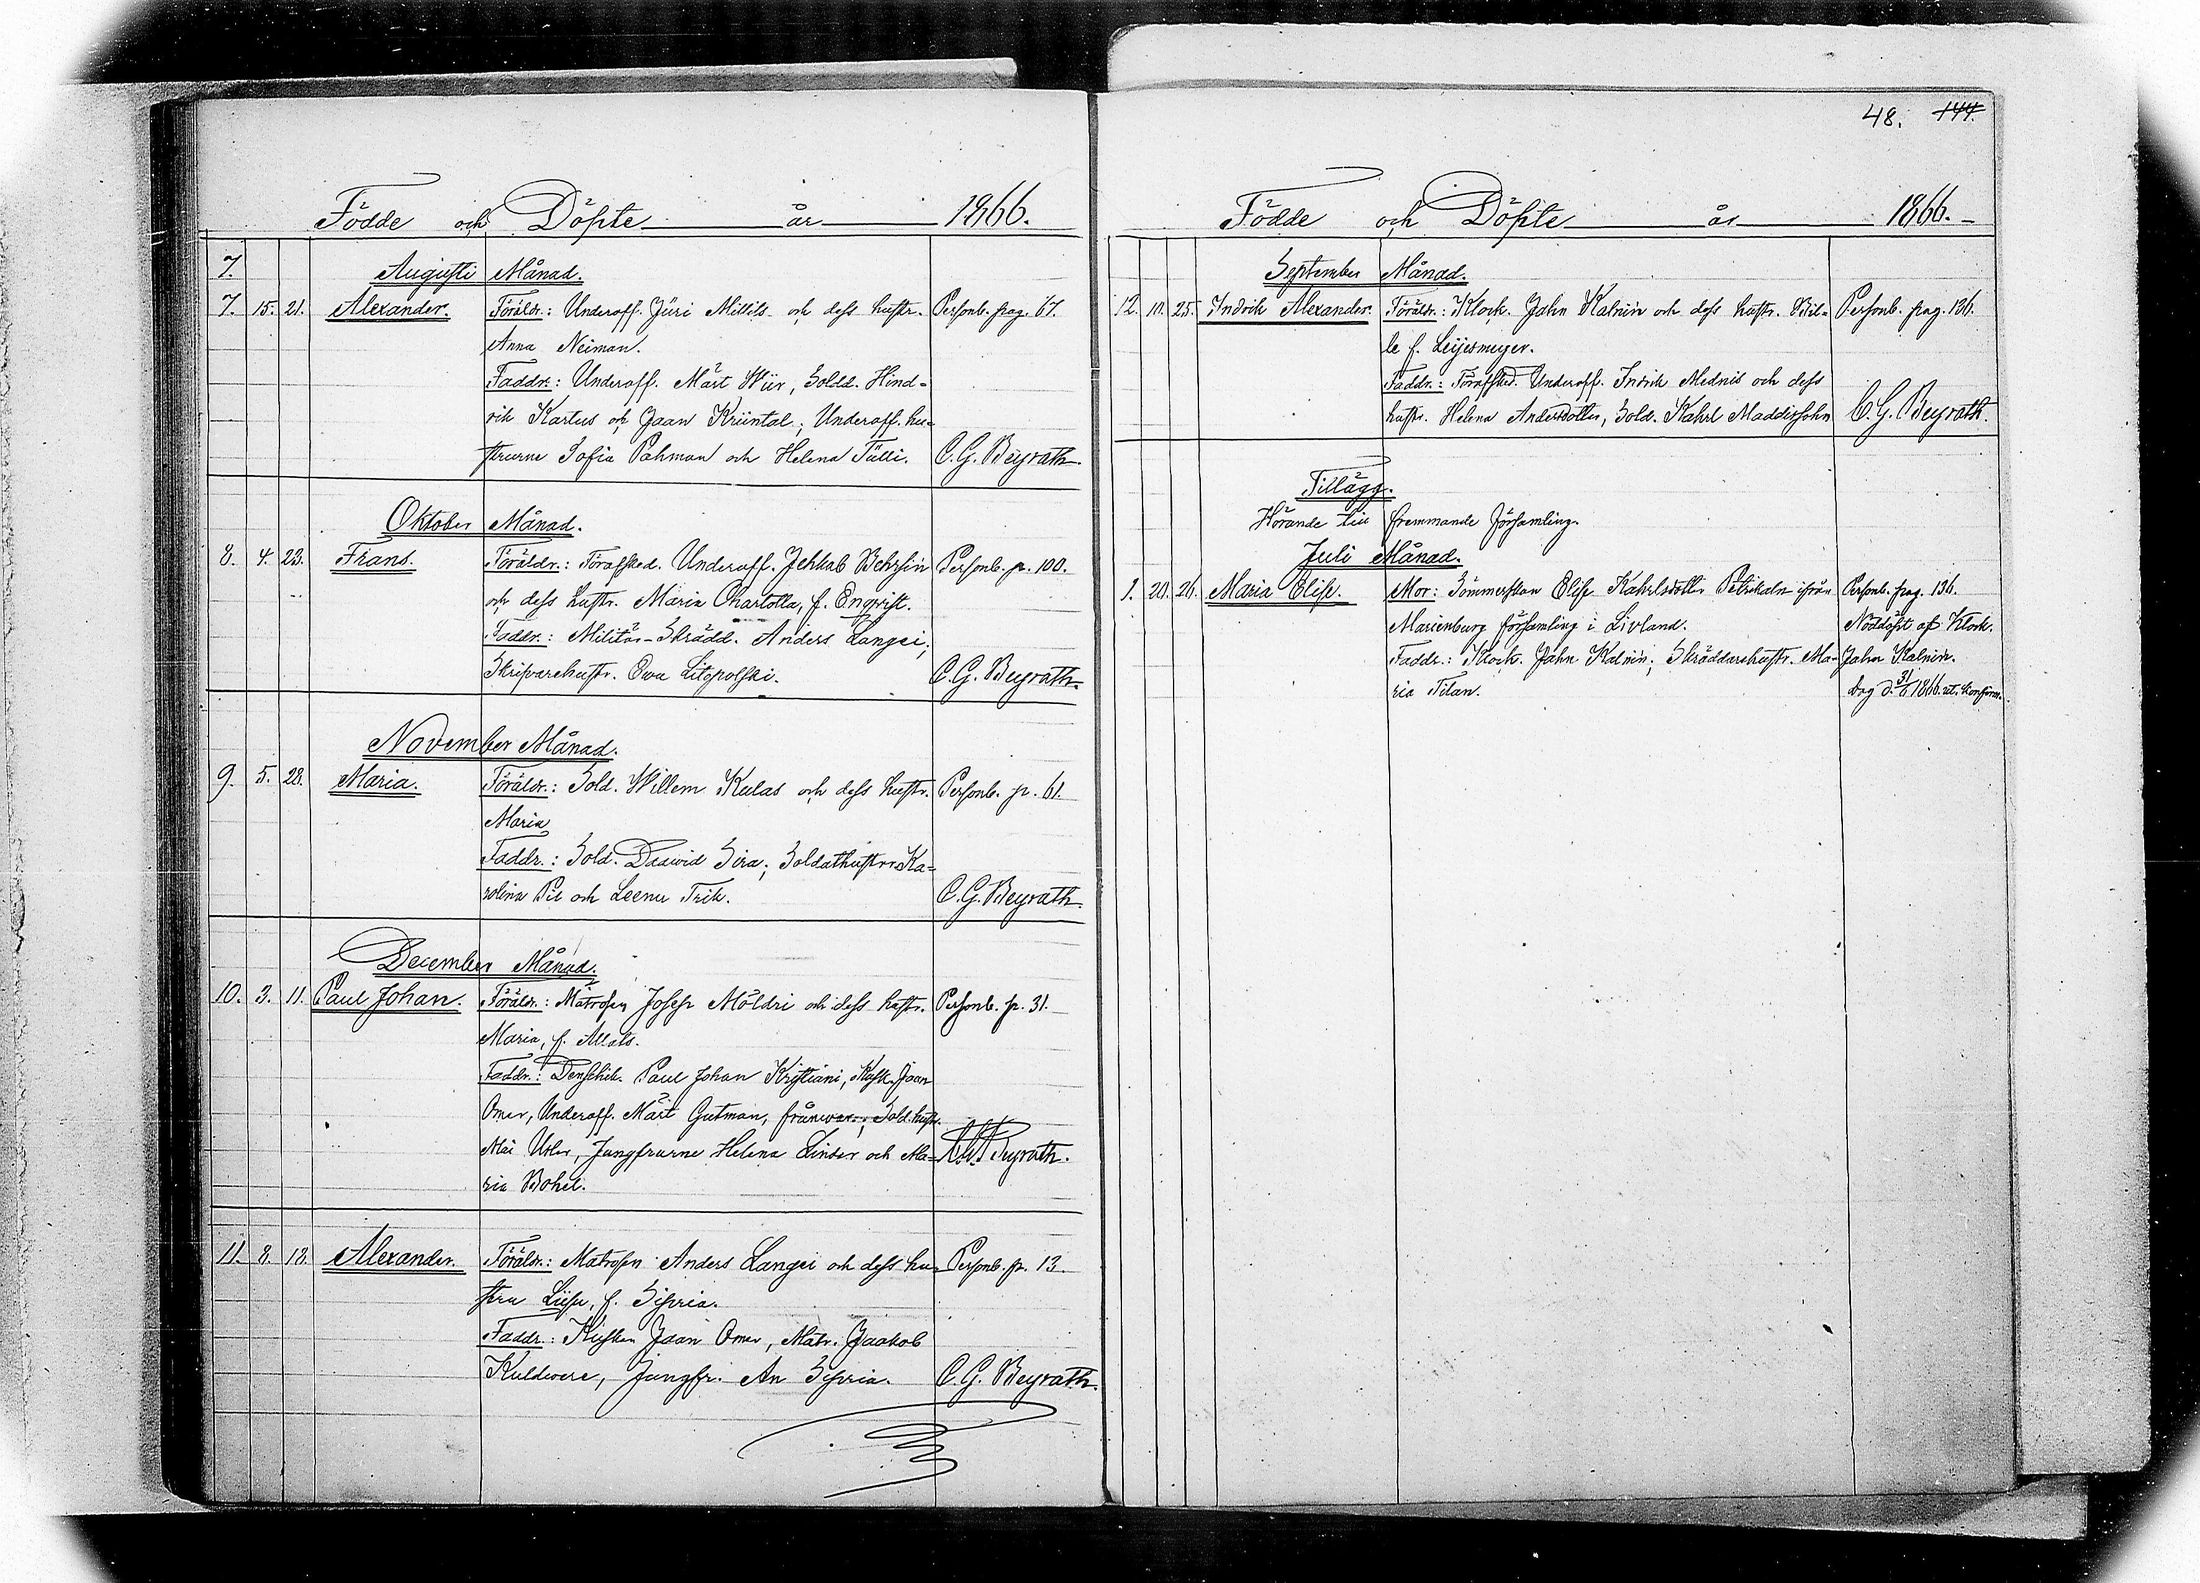 Födde och Döpte år 1866.
7. Augusti Månad.
7. 15. 21. Alexander. Föräldr.: Underoff. Jüri Millils och dess hustr. Personb. pag. 67.
Anna Neiman.
Faddr.: Underoff. Märt Wiir, Sold. Hind-
rik Kartus och Jaan Krüntal; Underoff. hu-
strurne Sofia Pahman och Helena Tülli. C. G. Beyrath.
Oktober Månad.
8. 4. 23. Frans. Föräldr.: Förafsked. Underoff. Jehkab Behrsin Personb. p. 100.
och dess hustr. Maria Charlotta, f. Enqvist.
Faddr.: Militär-Skrädd. Anders Langei;
Skrifvarehustr. Ewa Litopolski. C. G. Beyrath.
November Månad.
9. 5. 28. Maria. Föräldr.: Sold. Willem Kulas och dess hustr. Personb. p. 61.
Maria
Faddr.: Sold. Daawid Sira; Soldathustr. Ka-
rolina Pil och Leenu Trik. C. G. Beyrath.
December Månad.
10. 3. 11. Paul Johan. Föräldr.: Matrosen Josep Möldri och dess hustr. Personb. p. 31.
Maria, f. Allats.
Faddr.: Denschik. Paul Johan Kristiani, Kusk. Jaan
Omer, Underoff. Märt Gutman, frånvar.; Sold. hustr.
Mai Usler, Jungfrurne Helena Linder och Ma- Beyrath.
ria Bohel.
11. 8. 18. Alexander. Föräldr.: Matrosen Anders Langei och dess hu- Personb. p. 13.
stru Liisu, f. Sipria.
Faddr.: Kusken Jaan Omer, Matr. Jaakob
Kuldwere, Jungfr. An Sipria. C. G. Beyrath.
48. 144.
Födde och Döpte år 1866.
September Månad.
12. 10. 25. Indrik Alexander. Föräldr.: Klock. Jahn Kalnin och dess hustr. Bil- Personb. pag. 136.
le f. Leijesmeyer.
Faddr.: Förafsked. Underoff. Indrik Mednis och dess
hustr. Helena Andersdotter, Sold. Kahrl Maddissohn C. G. Beyrath.
Tillägg.
Hörande till fremmande församling.
Juli Månad.
1. 20. 26. Maria Elise. Mor: Sömmerskan Elise Kahrlsdotter Petrikaln ifrån Personb. pag. 136.
Marienburg församling i Livland. Nöddöpt af Klock.
Faddr.: Klock. Jahn Kalnin; Skräddarehustr. Ma- Jahn Kalnin.
ria Tilan. 1866. konfirm.